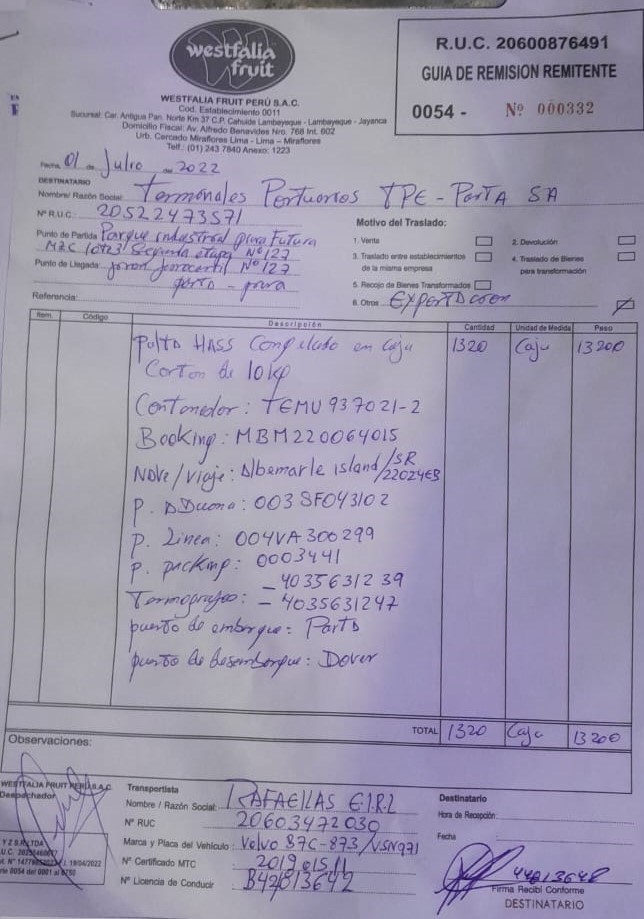 westfalia
fruit
WESTFALIA FRUIT PERÚ S.A.C.
Cod. Establecimiento 0011
Sucursal: Car. Antigua Pan. Norte Km 37 C.P. Cahuide Lambayeque - Lambayeque - Jayanca
Domicilio Fiscal: Av. Alfredo Benavides Nro. 768 Int. 602
Urb. Cercado Miraflores Lima - Lima - Miraflores
Telf.: (01) 243 7840 Anexo: 1223
R.U.C. 20600876491
GUIA DE REMISION REMITENTE
0054 - Nº 000332
Fecha, 01 de Julio de 2022
DESTINATARIO
Nombre/ Razón Social: Terminales Portuarios TPE - Paita SA
Nº R.U.C: 20522473571
Punto de Partida: Parque industrial piura Futura
Segunda etapa Nº 127
Punto de Llegada: ferrocarril Nº 127
Referencia:
Motivo del Traslado:
1. Venta
2. Devolución
3. Traslado entre establecimientos de la misma empresa
4. Traslado de Bienes para transformación
5. Recojo de Bienes Transformados
6. Otros
Item. Código Descripción Cantidad Unidad de Medida Peso
Palta HASS Congelado en Caja 1320 Caja 13200
Carton de 10 kg
Contenedor: TEMU 937021-2
Booking: MBM220064015
Nave/Viaje: Albemarle island/SR
22024EB
P. ADuana: 003SF043102
P. Linea: 004VA300299
P. packing: 0003441
Termografos: - 4035631239
- 4035631247
puerto de embarque: Paita
puerto de desembarque: Dover
TOTAL 1320 Caja 13200
Observaciones:
WESTFALIA FRUIT PERU S.A.C.
Despachador
19/04/2022
Transportista
Nombre / Razón Social: RAFAELLAS E.I.R.L
Nº RUC 20603472030
Marca y Placa del Vehículo: Volvo
Nº Certificado MTC
Nº Licencia de Conducir B42813642
Destinatario
Hora de Recepción:
Fecha
Firma Recibí Conforme
DESTINATARIO